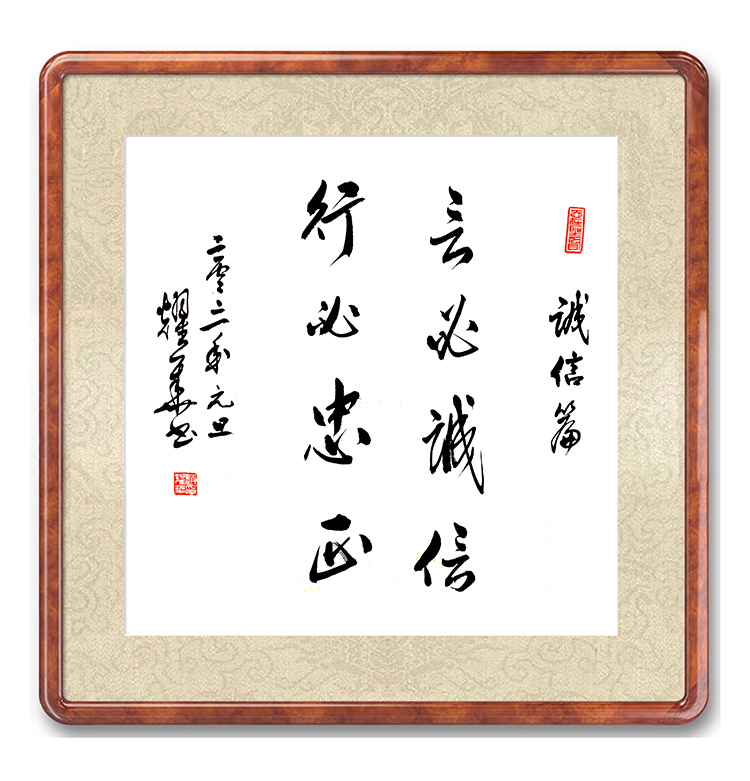 诚信篇
言必诚信
行必忠正
二零二一年元旦
耀華书